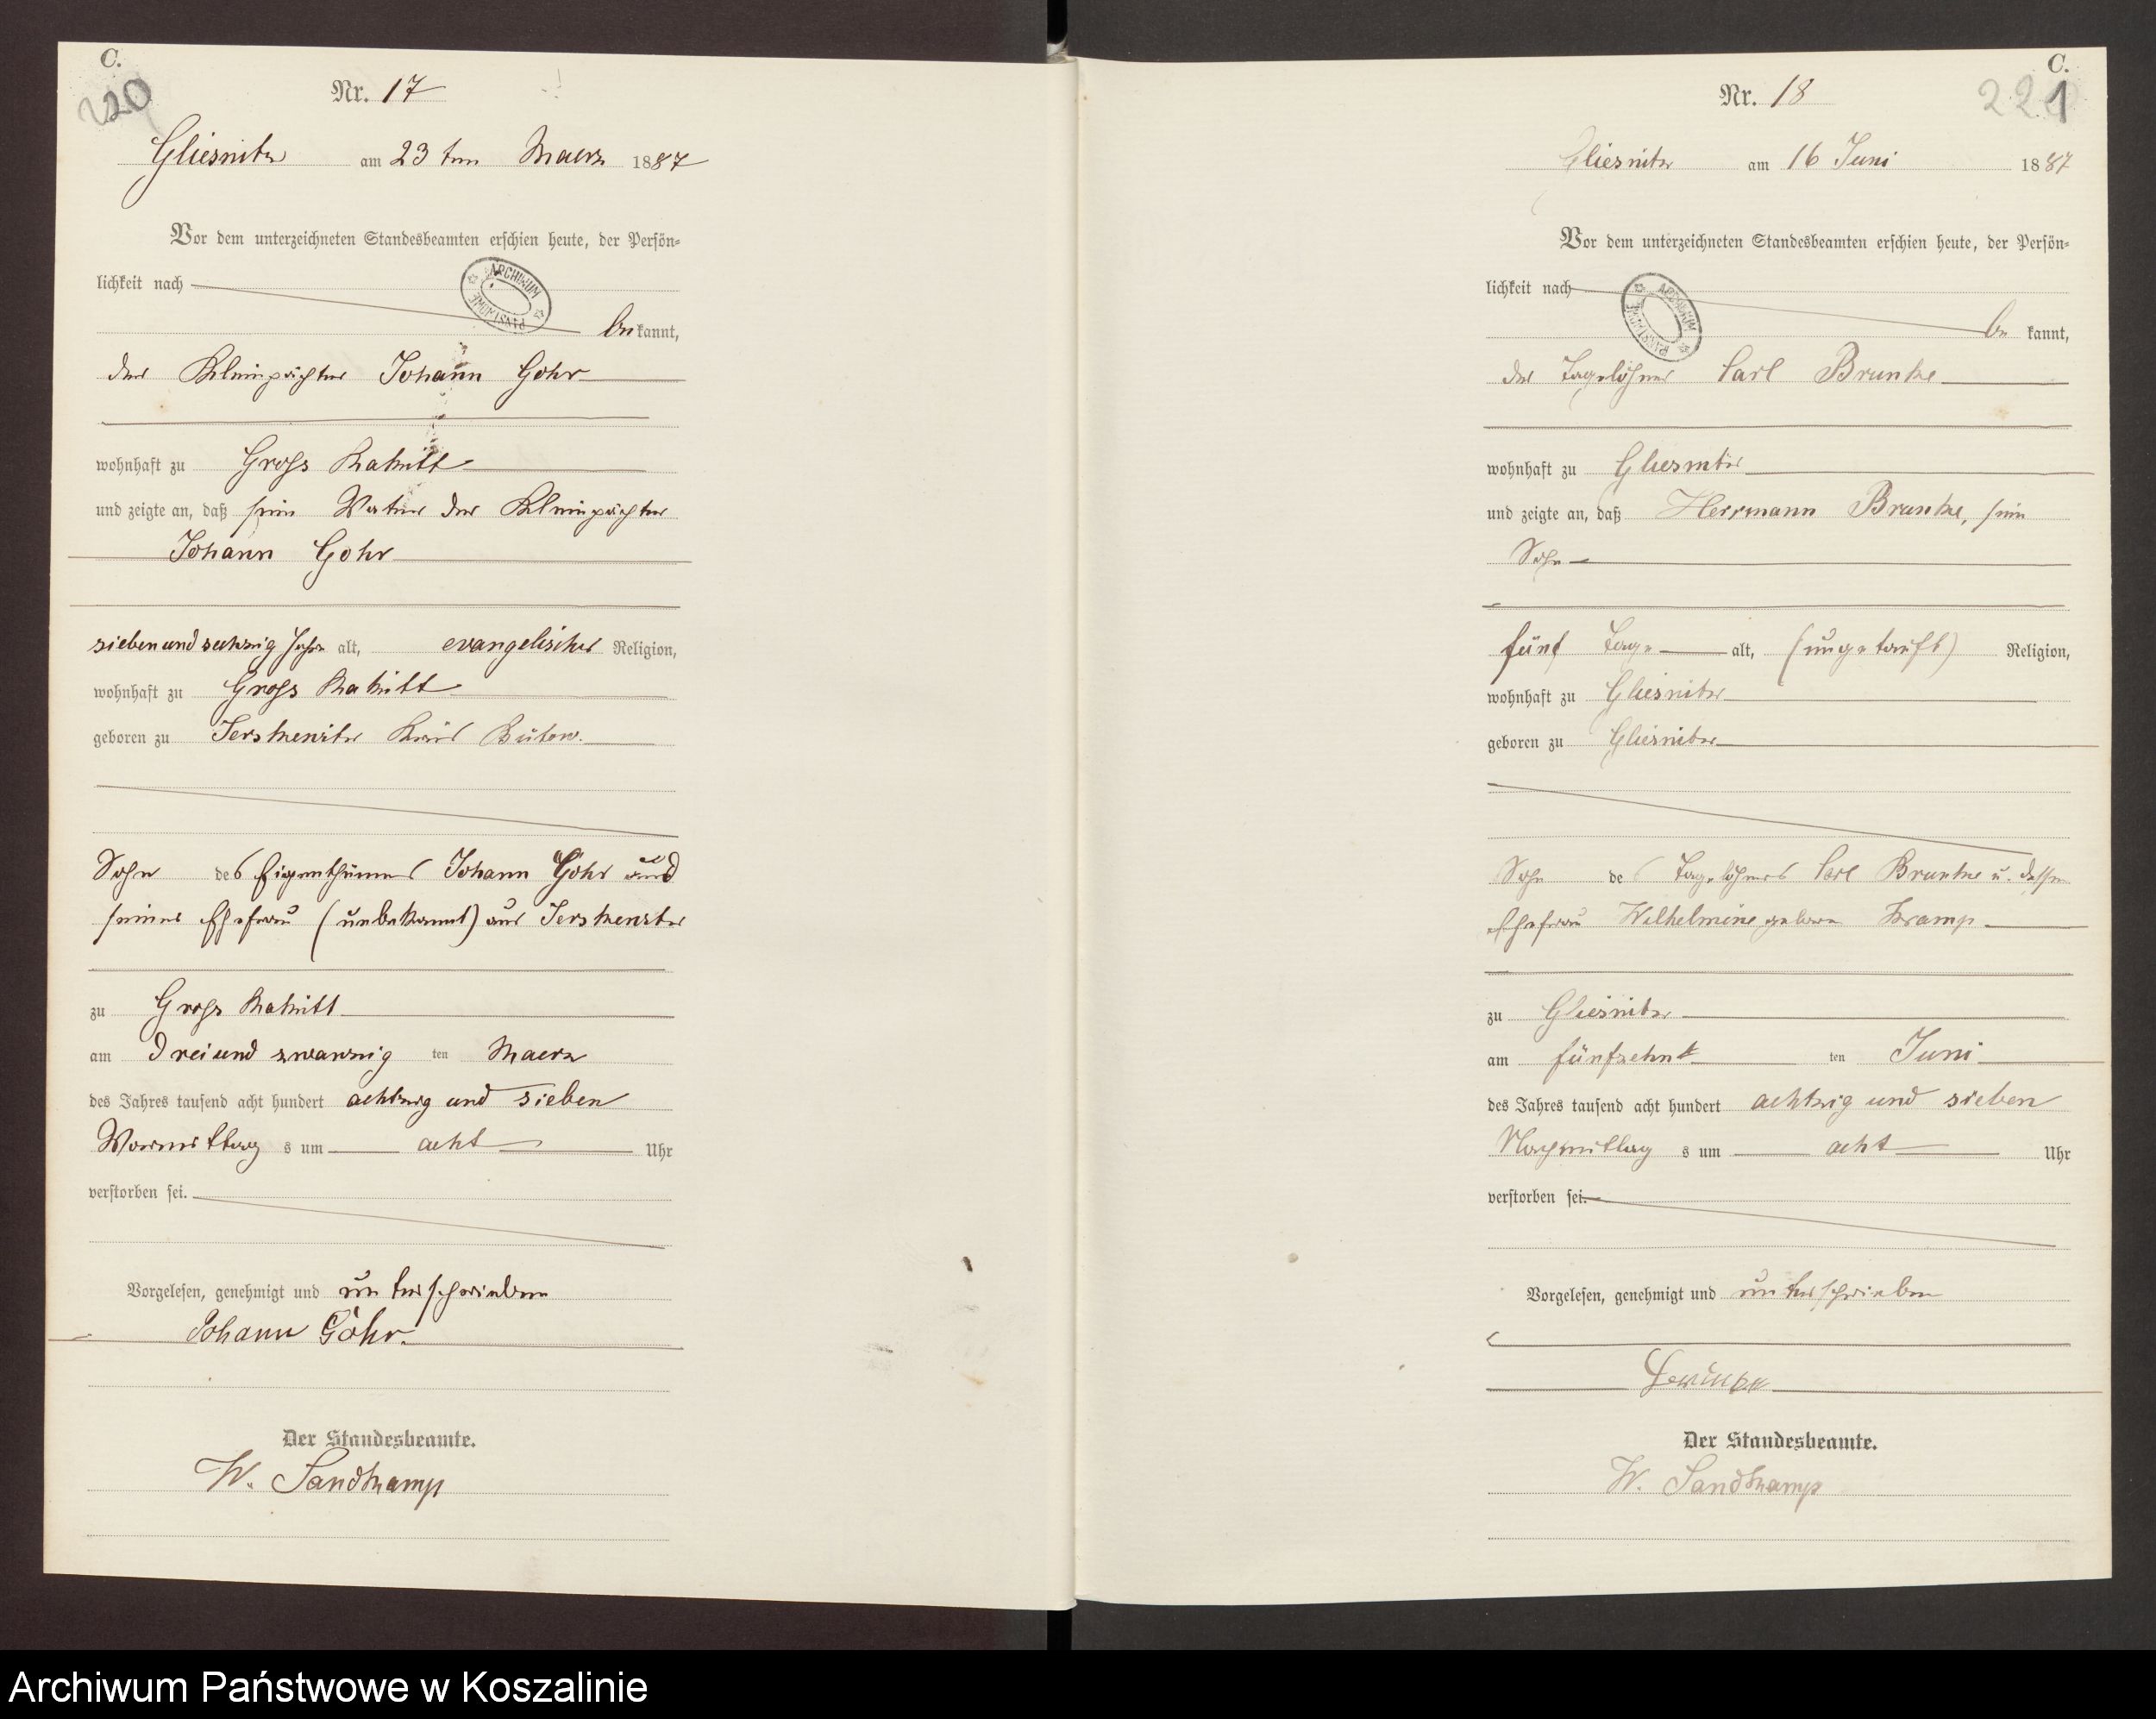 C.
220
Nr. 17
Gliesnitz am 23 ten Maerz 1887
Vor dem unterzeichneten Standesbeamten erschien heute, der Persön-
lichkeit nach
ARCHIWUM PAŃSTWOWE
be kannt,
der Kleinpächter Johann Gohr
wohnhaft zu Gross Rakitt
und zeigte an, daß sein Vater der Kleinpächter
Johann Gohr
siebenundsechzig Jahre alt, evangelischer Religion,
wohnhaft zu Gross Rakitt
geboren zu Jerskewitz Kreis Bütow.
Sohn des Eigenthümers Johann Göhr und
seiner Ehefrau (unbekannt) aus Jerskewitz
zu Gross Rakitt
am Dreiundzwanzig ten Maerz
des Jahres tausend acht hundert achtzig und sieben
Vormittag s um acht Uhr
verstorben sei.
Vorgelesen, genehmigt und unterschrieben
Johann Göhr.
Der Standesbeamte.
W. Sandkamp
C.
221
Nr. 18
Gliesnitz am 16 Juni 1887
Vor dem unterzeichneten Standesbeamten erschien heute, der Persön-
lichkeit nach
ARCHIWUM PAŃSTWOWE
be kannt,
der Tagelöhner Carl Brunke
wohnhaft zu Gliesnitz
und zeigte an, daß Herrmann Brunke, sein
Sohn
fünf Tage alt, (ungetauft) Religion,
wohnhaft zu Gliesnitz
geboren zu Gliesnitz
Sohn des Tagelöhners Carl Brunke u. dessen
Ehefrau Wilhelmine geboren Kramp
zu Gliesnitz
am fünfzehnt ten Juni
des Jahres tausend acht hundert achtzig und sieben
Nachmittag s um acht Uhr
verstorben sei.
Vorgelesen, genehmigt und unterschrieben
Der Standesbeamte.
W. Sandkamp
Archiwum Państwowe w Koszalinie